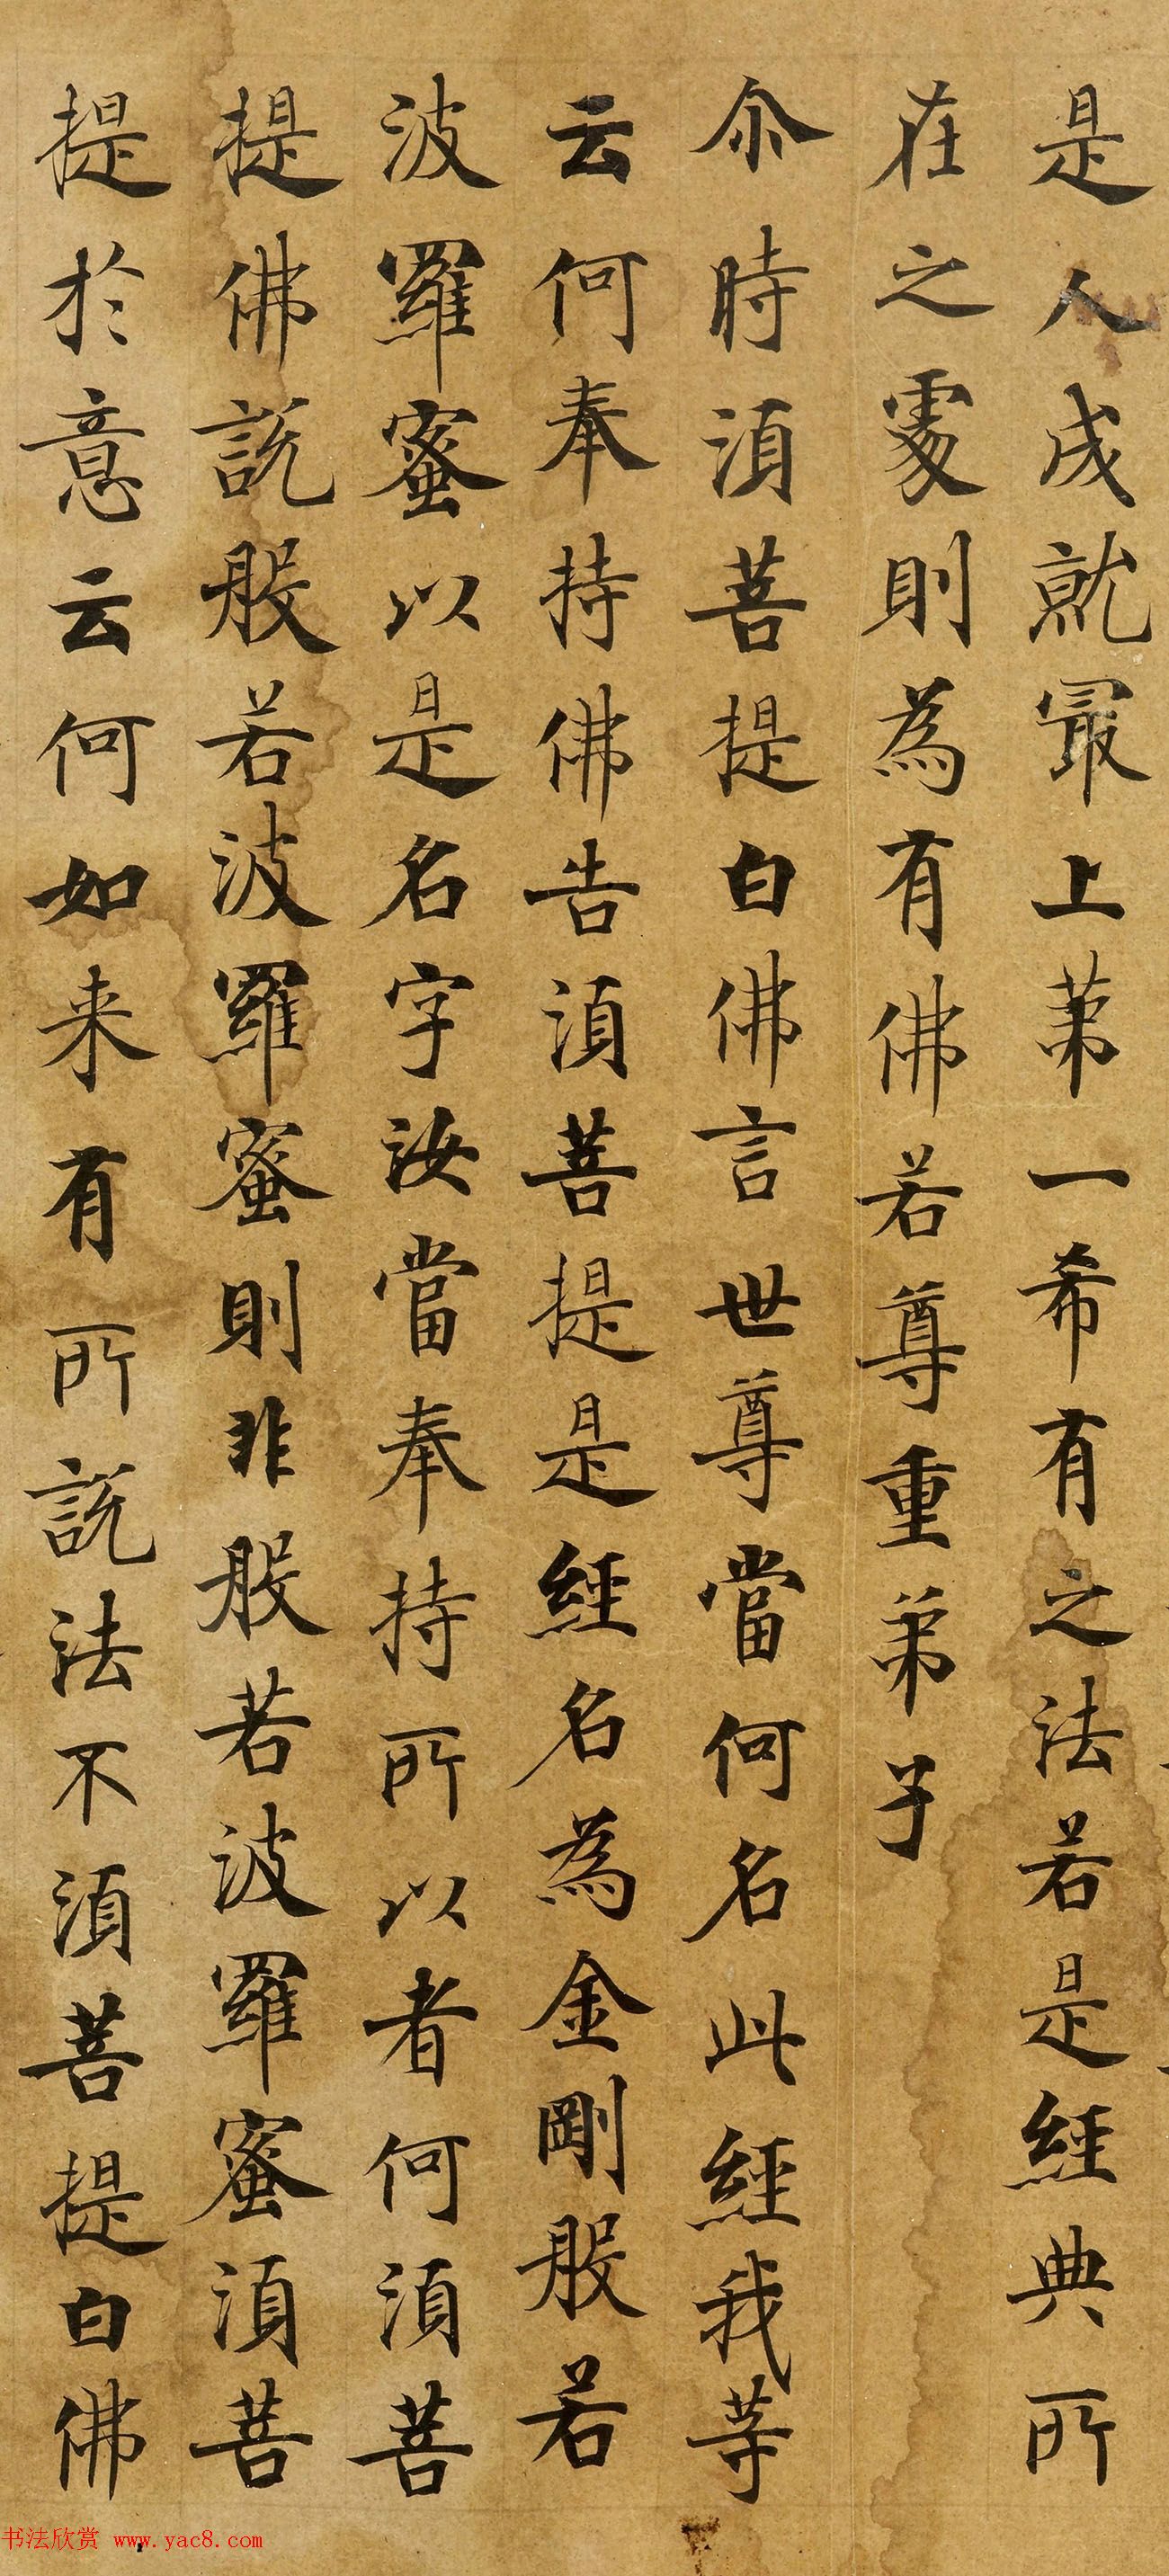 是人成就冣上苐一希有之法若是經典所
在之處則為有佛若尊重弟子
尒時湏菩提白佛言世尊當何名此經我等
云何奉持佛告湏菩提是經名為金剛般若
波羅蜜以是名字汝當奉持所以者何湏菩
提佛說般若波羅蜜則非般若波羅蜜湏菩
提於意云何如来有所說法不湏菩提白佛
书法欣赏 www.yac8.com